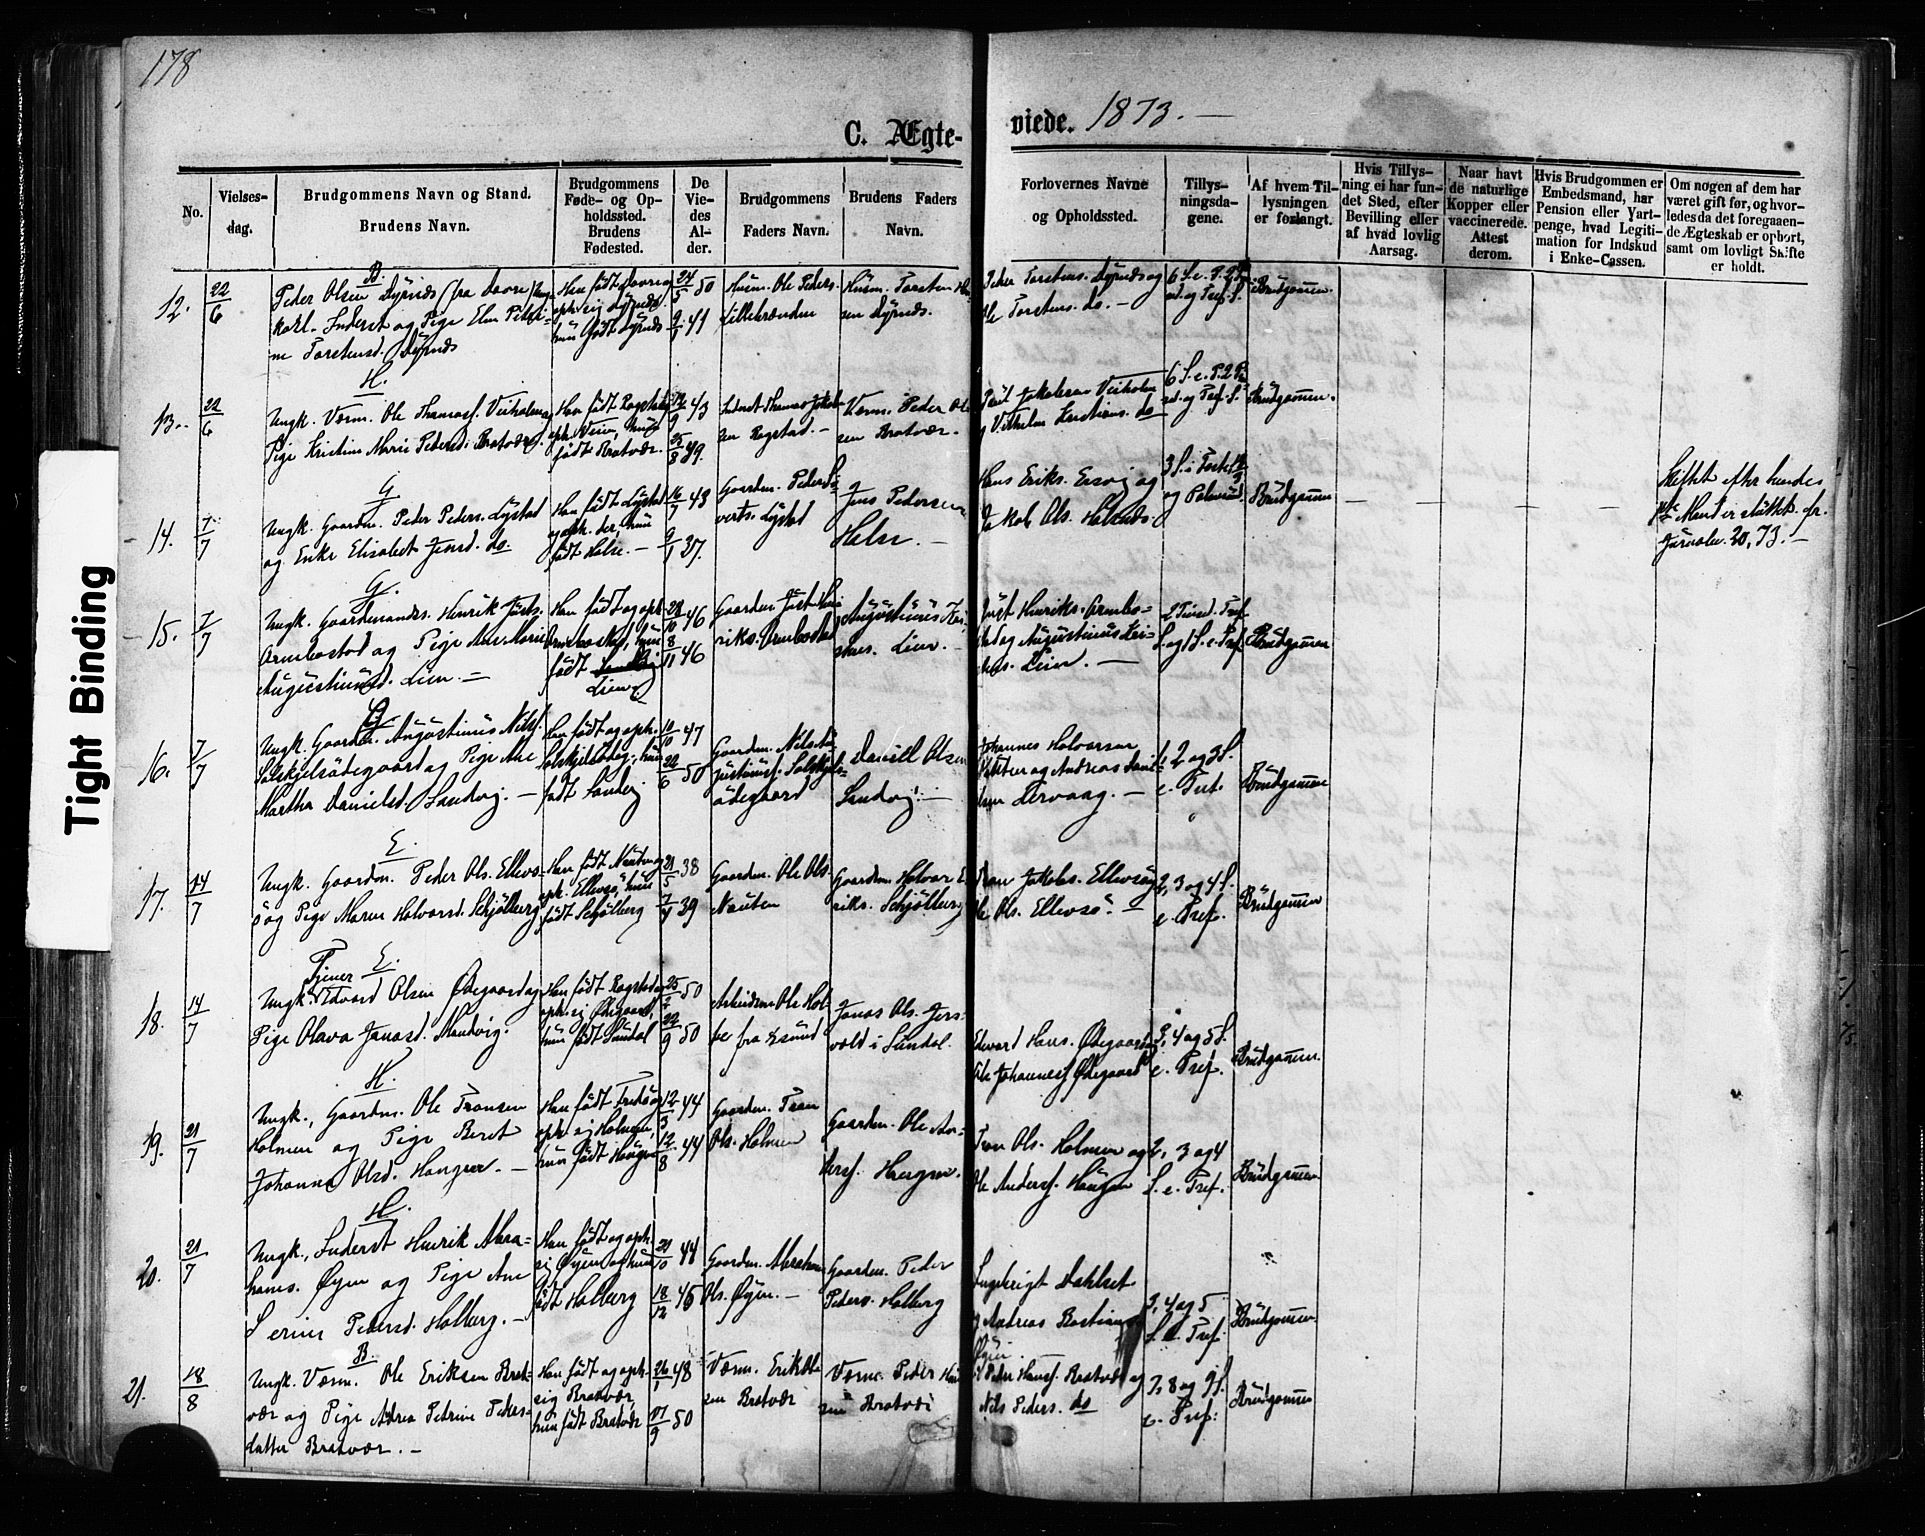 178
C. Ægte-
viede. 1873. —
No.
Vielses-
dag.
Brudgommens Navn og Stand.
Brudens Navn.
Brudgommens
Føde- og Op-
holdssted.
Brudens
Fødested.
De
Vie-
des
Al-
der.
Brudgommens
Faders Navn.
Brudens Faders
Navn.
Forlovernes Navne
og Opholdssted.
Tillys-
ningsda-
gene.
Af hvem Til-
lysningen
er forlangt.
Hvis Tillys-
ning ei har fun-
det Sted, efter
Bevilling eller
af hvad lovlig
Aarsag.
Naar havt
de naturlige
Kopper eller
vaccinerede.
Attest
derom.
Hvis Brudgommen er
Embedsmand, har
Pension eller Vart-
penge, hvad Legiti-
mation for Indskud
i Enke-Cassen.
Om nogen af dem har
været gift før, og hvor-
ledes da det foregaaen-
de Ægteskab er ophørt,
samt om lovligt Skifte
er holdt.
Tight Binding
12.
22/6
B.
Peder Olsen Dyrnds (fra Dovre) Ung-
karl. Inderst og Pige Elen Petri-
ne Torstensd. Dyrnds
24/5 50
9/1 41
Husm. Ole Peders.
Lillebrænden
Husm. Torsten
sen Dyrnds.
Peder Torstens. Dyrnds og
Ole Torstens. do. —
Brudgommen.
13.
22/6
H.
Ungk. Værm. Ole Thomass. Veiholmen
Pige Kristine Marie Pedersd. Bratvær.
Han født Rogstad
oph. Veien, hun
født Bratvær.
12/9 43
25/8 49.
Inderst Thomas Jakob-
sen Rogstad. —
Værm. Peder Ole-
sen Bratvær.
Paul Jakobsen Veiholm
og Vilhelm Kristians. do
Brudgommen.
14.
7/7
G
Ungk. Gaardm. Peder Peders. Lystad
og Enke Elisabet Jensd. do.
Han født Lystad
og oph. der, hun
født Helse. —
16/7 43
9/1 37.
Gaardm. Peder Si-
verts. Lystad
Jens Pedersen
Helse. —
Hans Eriks. Ersvig og
Jakob Ols. Holsnds.
Brudgommen
Skiftet efter hendes
Mand er sluttet. cfr.
Journaler. 20, 73. —
15.
7/7
G.
Ungk. Gaardmands. Henrik Justs.
Arnebostad og Pige Ane Marie
Augustinusd. Lien. —
Han født og oph.
Arnebostad, hun
født
Lien.
28/10 46
8/11 46
Gaardm. Just Hen-
riks. Arnebostad
Augustinus
Lien. —
Just Henriks. Arnebo-
stad og Augustinus
Lien. —
Brudgommen
16.
7/7
B
Ungk. Gaardm. Augustinus Nilss.
Solskjelsødegaard og Pige Ane
Martha Danielsd. Sandvig. —
Han født og oph.
Solskjelsødeg., hun
født Sandvig
10/10 47
22/6 50
Gaardm. Nils Au-
gustinuss. Solskjels-
ødegaard
Daniel Olsen
Sandvig. —
Johannes Halvorsen
og Andreas Dani-
elsen Lervaag. —
1, 2 og 3 S.
e. Tref.
Brudgommen
17.
14/7
E.
Ungk. Gaardm. Peder Ols. Ellevs-
ø og Pige Maren Halvorsd. Schjølberg
Han født Nauten og
oph. Ellevsø, hun
født Schjølberg
21/5 38
7/4 39
Gaardm. Ole Ols.
Nauten
Gaardm. Halvor E-
riks. Schjølberg
Tron Jakobs. Ellevsø og
Ole Ols. Ellevsø. —
2, 3 og 4 S.
e. Tref.
Brudgommen
18.
14/7
E.
Tjener
Ungk. Edvard Olsen Ødegaard og
Pige Olava Jonasd. Mandvig.
Han født Rogstad og
oph. sig Ødegaard,
hun født Sundal
50
22/9 50
Arbeidsm. Ole Hol-
be fra Øsund
Jonas Ols. Jors-
vold i Sundal.
Edvard Hans. Ødegaard
Ole Johanness. Ødegaard
3, 4 og 5 S.
e. Tref.
Brudgommen.
19.
21/7
H.
Ungk., Gaardm. Ole Tronsen
Holmen og Pige Beret
Johanna Olsd. Haugen. —
Han født Fredsø og
oph. sig Holmen,
hun født Haugen
12/3 44
12/8 44
Gaardm. Tron
Ols. Holmen
Gaardm. Ole An-
derss. Haugen.
Tron Ols. Holmen og
Ole Anderss. Haugen
2, 3 og 4
S. e. Tref.
Brudgommen
20.
21/7
H.
Ungk., Inderst Henrik Abra-
hams. Øyen og Pige Ane
Serine Pedersd. Holberg. —
Han født og oph.
sig Øyen og hun
født Holberg
21/10 44
18/12 45
Gaardm. Abraham
Ols. Øyen. —
Gaardm. Peder
Peders. Holberg
Ingebrigt Dahlset
og Andreas Bastians
Øyen
3, 4 og 5
S. e. Tref.
Brudgommen.
21.
18/8
B.
Ungk. Værm. Ole Eriksen Brat-
vær og Pige Adrea Petrine Peders-
datter Bratvær. —
Han født og oph.
sig Bratvær,
hun født Bratvær
26/1 48
17/9 50
Værm. Erik Ole-
sen Bratvær
Værm. Peder Han-
sen Bratvær
Peder Hanss. Bratvær og
Nils Peders. do
7, 8 og 9 S.
e. Tref.
Brudgommen